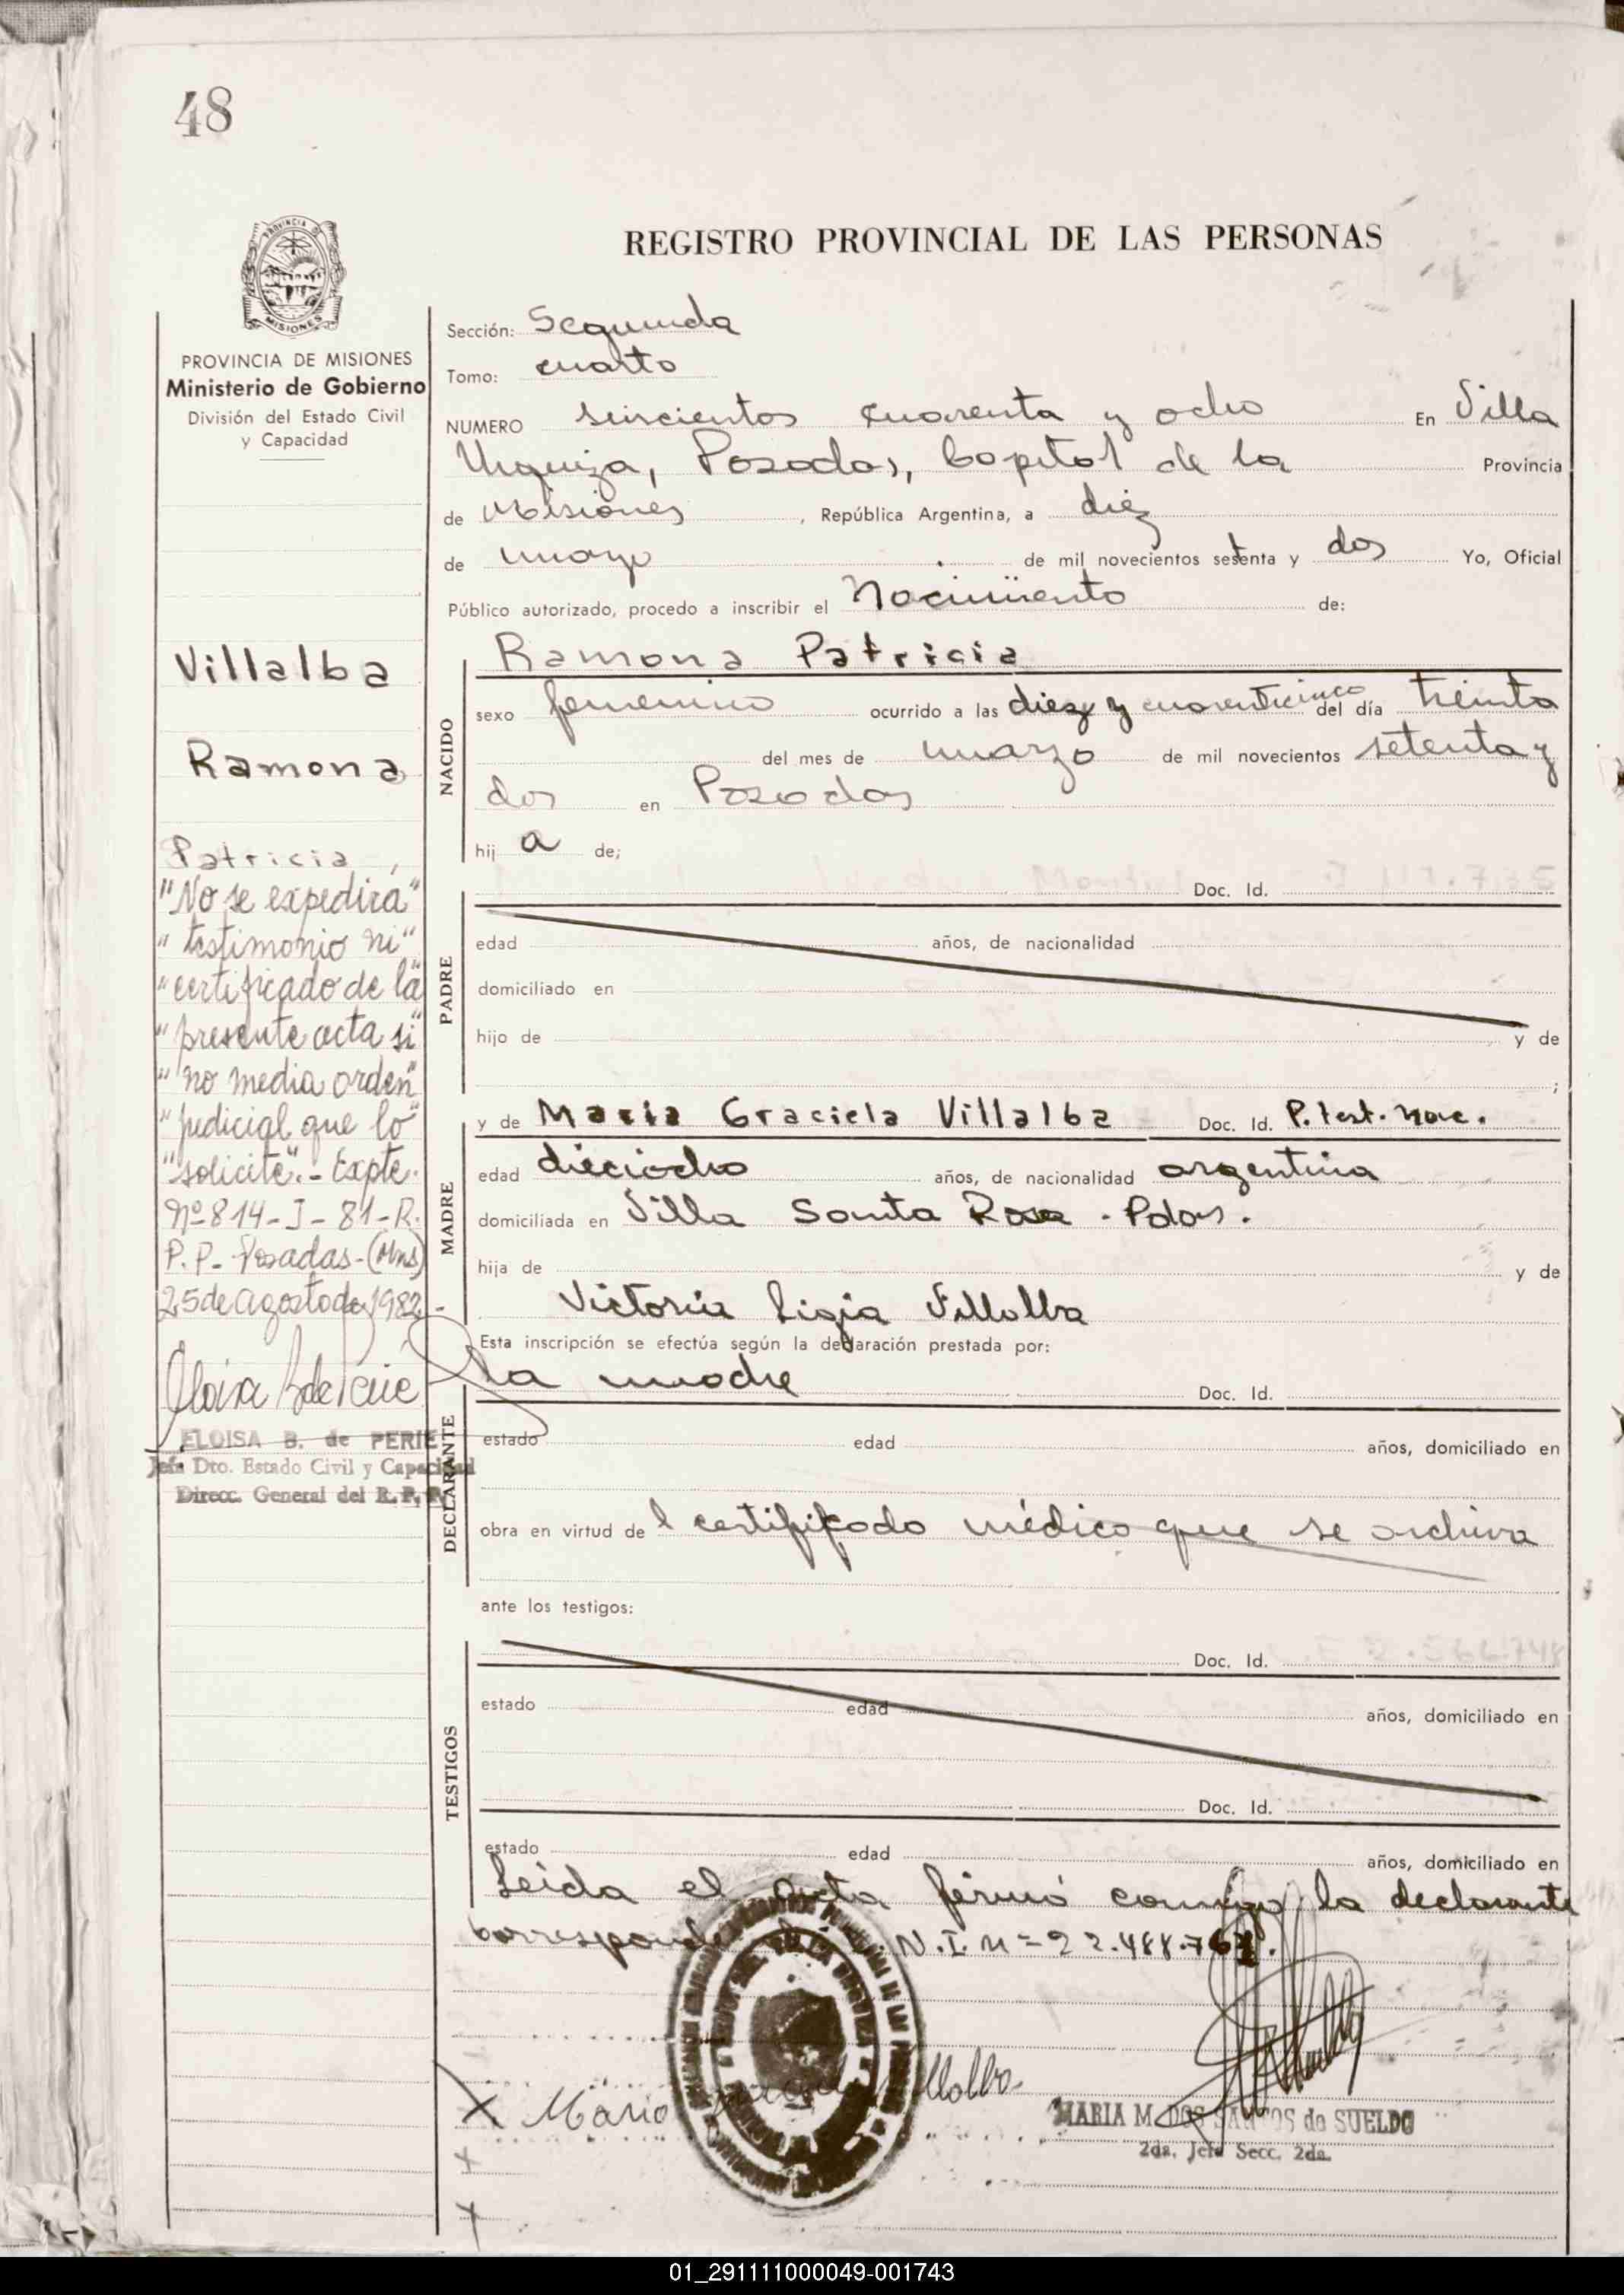 48
PROVINCIA DE
MISIONES
REGISTRO PROVINCIAL DE LAS PERSONAS
PROVINCIA DE MISIONES
Ministerio de Gobierno
División del Estado Civil
y Capacidad
Villalba
Ramona
Patricia,
"No se expedirá"
"testimonio ni"
"certificado de la"
"presente acta si"
"no media orden"
"judicial que lo"
"solicite".- Expte.
Nº 814-I-81-R.
P.P.- Posadas-(Mns)
25 de agosto de 1982.-
ELOISA B. de PERIE
Jefa Dto. Estado Civil y Capacidad
Direcc. General del R. P. P.
Sección: Segunda
Tomo: cuarto
NUMERO seiscientos cuarenta y ocho En Villa
Urquiza, Posadas, Capital de la Provincia
de Misiones, República Argentina, a diez
de mayo de mil novecientos setenta y dos Yo, Oficial
Público autorizado, procedo a inscribir el Nacimiento de:
NACIDO
Ramona Patricia
sexo femenino ocurrido a las diez y cuarenticinco del día treinta
del mes de marzo de mil novecientos setenta y
dos en Posadas
hij a de;
PADRE
Doc. Id.
edad años, de nacionalidad
domiciliado en
hijo de y de
;
MADRE
y de Maria Graciela Villalba Doc. Id. P. test. nac.
edad dieciocho años, de nacionalidad argentina
domiciliada en Villa Santa Rosa - Pdas.
hija de y de
Victoria Ligia Villalba
Esta inscripción se efectúa según la declaración prestada por:
DECLARANTE
la madre Doc. Id.
estado edad años, domiciliado en
obra en virtud de l certificado médico que se archiva
ante los testigos:
TESTIGOS
Doc. Id.
estado edad años, domiciliado en
Doc. Id.
estado edad años, domiciliado en
Leida el acta firmó conmigo la declarante
corresponde N.I. M= 22.488.
Maria Villalba
MARIA M. DOS SANTOS de SUELDO
2da. Jefe Secc. 2da.
01_291111000049-001743